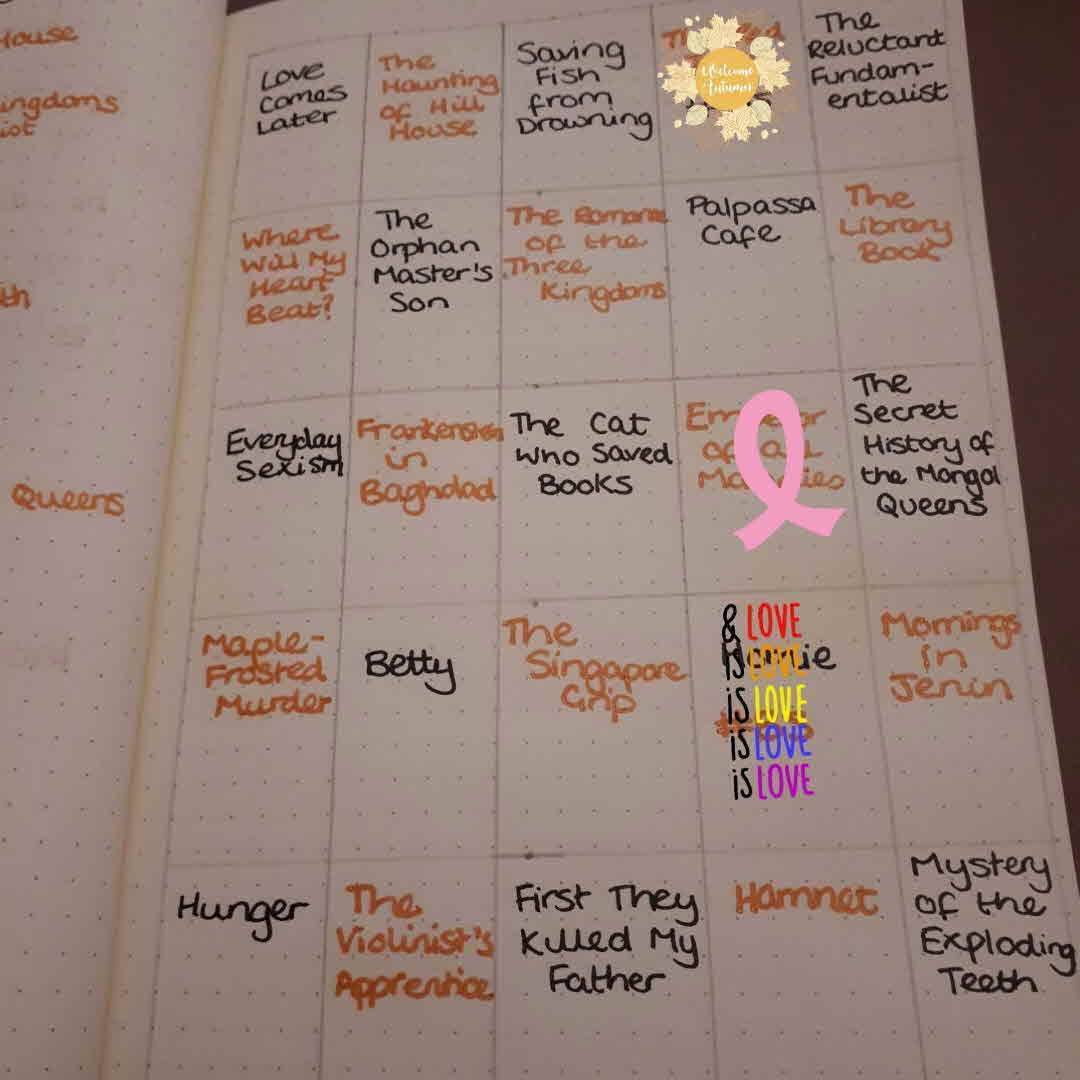 House
ingdoms
iot
th
Queens
Love
Comes
Later
The
Haunting
of Hill
House
Saving
Fish
from
Drowning
Welcome
Autumn
The
Reluctant
Fundam-
entalist
Where
Will My
Heart
Beat?
The
Orphan
Master's
Son
The Romance
of the
Three
Kingdoms
Palpassa
Cafe
The
Library
Book
Everyday
Sexism
Frankenstein
in
Baghdad
The Cat
Who Saved
Books
The
Secret
History of
the Mongol
Queens
Maple-
Frosted
Murder
Betty
The
Singapore
Grip
& LOVE
is LOVE
is LOVE
is LOVE
is LOVE
Mornings
in
Jenin
Hunger
The
Violinist's
Apprentice
First They
Killed My
Father
Hamnet
Mystery
of the
Exploding
Teeth